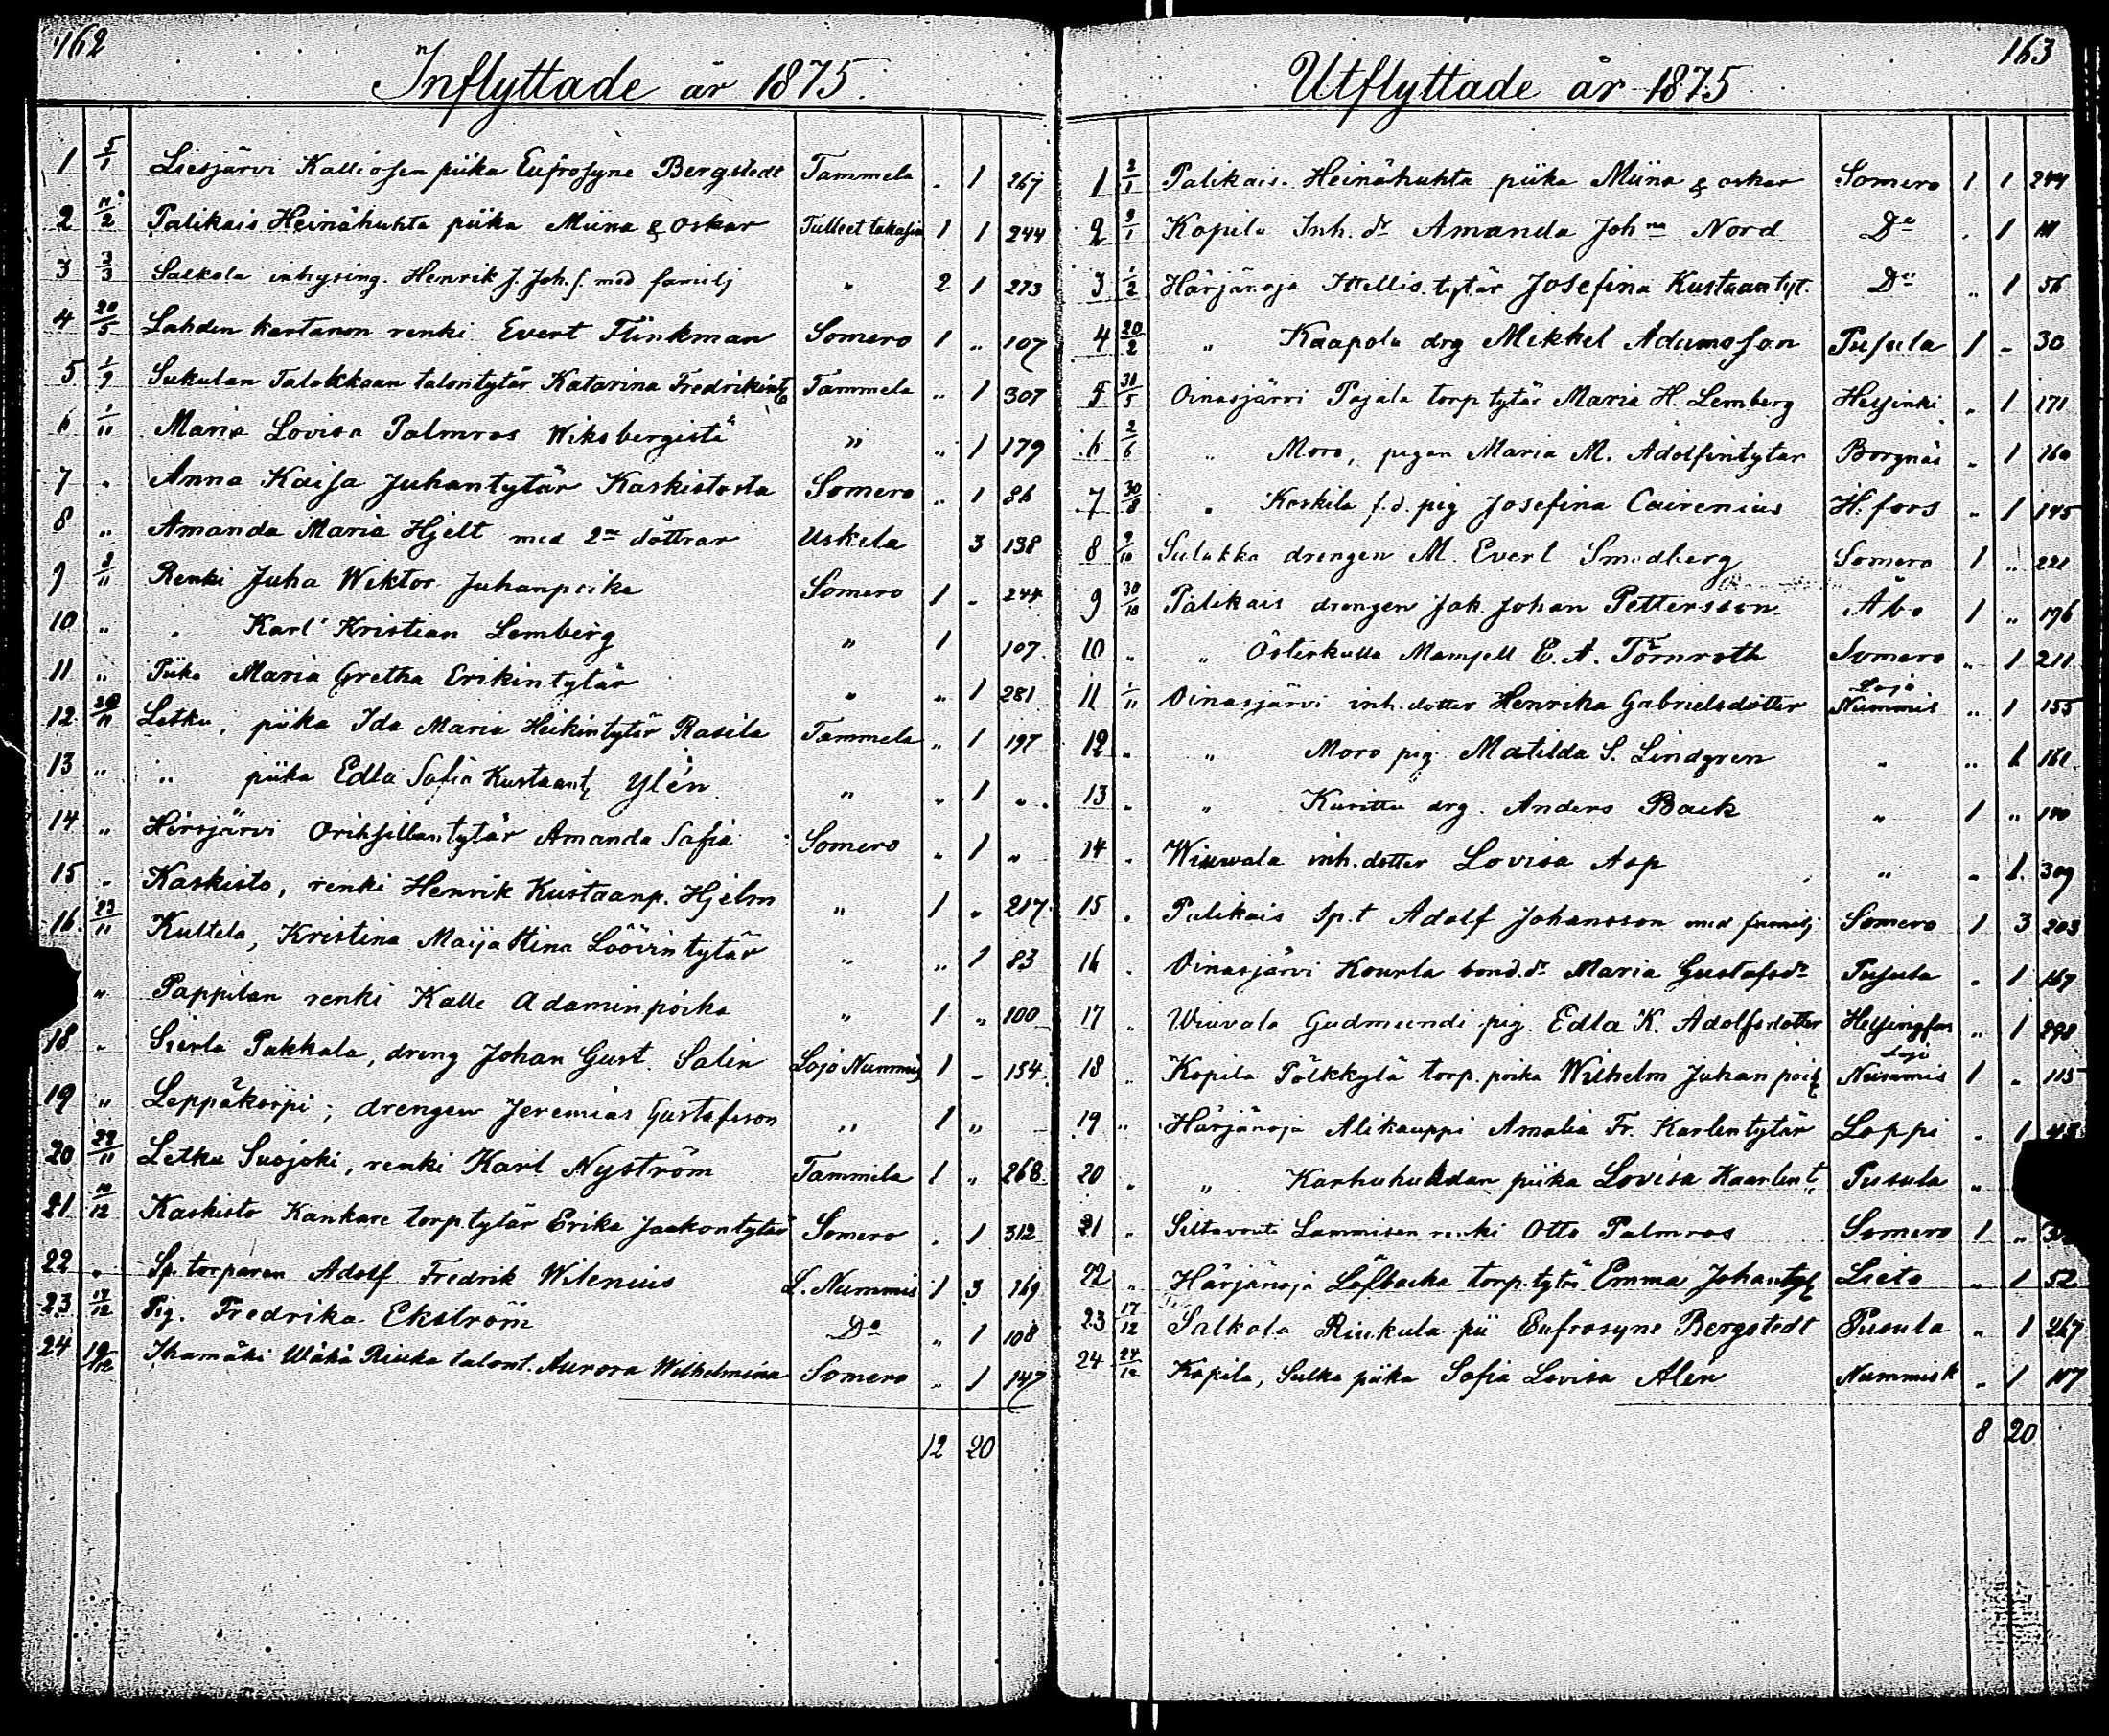 162
Inflyttade år 1875.
1 5/1 Liesjärvi Kalliosen piika Eufrosyne Bergstedt Tammela „ 1 267
2 11/2 Palikais Heinähuhta piika Miina & Oskar Tulleet takasin 1 1 244
3 3/3 Salkola inhysing. Henrik J. Joh. s. med familj „ 2 1 273
4 20/5 Lahden kartanon renki Evert Flinkman Somero 1 „ 107
5 1/9 Sukulan Talokkaan talontytär Katarina Fredrikint. Tammela „ 1 307
6 1/11 Maria Lovisa Palmros Wiksbergistä „ „ 1 179
7 „ Anna Kaisa Juhantytär Kaskistosta Somero „ 1 86
8 „ Amanda Maria Hjelt med 2ne döttrar Uskela 3 138
9 3/11 Renki Juha Wiktor Juhanpoika Somero 1 „ 244
10 „ „ Karl Kristian Lemberg „ 1 107
11 „ Piika Maria Gretha Erikintytär „ „ 1 281
12 20/11 Letku, piika Ida Maria Heikintytär Rasila Tammela „ 1 197
13 „ „ piika Edla Sofia Kustaant. Ylén „ „ 1 „
14 „ Hirsjärvi Orihsillan tytär Amanda Sofia Somero „ 1 „
15 „ Kaskisto, renki Henrik Kustaanp. Hjelm „ 1 „ 217
16 23/11 Kultela, Kristina Maija Stina Löövintytär „ „ 1 83
„ Pappilan renki Kalle Adaminpoika „ 1 „ 100
18 „ Sierla Pakkala, dreng Johan Gust. Salin Lojo Nummis 1 „ 154
19 „ Leppäkorpi; drengen Jeremias Gustafsson „ 1 „
20 29/11 Letku Suojoki, renki Karl Nyström Tammela 1 „ 268
21 10/12 Kaskisto Kankare torp tytär Erika Jaakontytär Somero „ 1 312
22 „ Sp. torparen Adolf Fredrik Wilenius L. Nummis 1 3 169
23 17/12 Pig. Fredrika Ekström Do „ 1 108
24 19/12 Ihamäki Wähä Riuka talont. Aurora Wilhelmina Somero „ 1 147
12 20
163
Utflyttade år 1875
1 2/1 Palikais. Heinähuhta piika Miina & Oskar Somero 1 1 244
2 9/1 Kopila Inh. dr Amanda Johna Nord Do „ 1 111
3 1/2 Härjänoja Ittellis. tytär Josefina Kustaantyt. Do „ 1 56
4 20/2 „ Kaapola drg Mikkel Adamsson Pusula 1 „ 30
5 31/5 Oinasjärvi Pajala torp tytär Maria H. Lemberg Helsinki „ 1 171
6 2/6 „ Moro, pigan Maria M. Adolfintytär Borgnäs „ 1 160
7 30/8 „ Koskila f.d. pig Josefina Cairenius H.fors „ 1 145
8 9/10 Sulakka drengen M. Evert Smedberg Somero 1 „ 221
9 30/10 Palikais drengen Jak. Johan Pettersson Åbo 1 „ 196
10 „ „ Österkulla Mamsell E. A. Törnroth Somero „ 1 211
11 1/11 Oinasjärvi inh. dotter Henrika Gabrielsdotter Lojo Nummis „ 1 155
12 „ „ Moro pig Matilda S. Lindgren „ „ 1 161
13 „ „ Kurittu drg. Anders Back „ 1 „ 140
14 „ Wiuwala inh. dotter Lovisa Asp „ „ 1 309
15 „ Palikais Sp.t Adolf Johansson med familj Somero 1 3 203
16 „ Oinasjärvi Kourla bond. dr Maria Gustafsdr Pusula „ 1 167
17 „ Wiuvala Gudmundi pig. Edla K. Adolfsdotter Helsingfors „ 1 298
18 „ Kopila Pölkkylä torp. poika Wilhelm Juhan poik. Lojo Nummis 1 „ 115
19 „ Härjänoja Alikauppi Amalia Fr. Karlentytär Loppi „ 1
20 „ „ Karhuhuhdan piika Lovisa Kaarlent. Pusula „
21 „ Siltavouti Lammisen renki Otto Palmros Somero 1 „
22 „ Härjänoja Löfbacka torp. tytär Emma Johantyt. Lieto „ 1 52
23 17/12 Salkola Riukula pii Eufrosyne Bergstedt Pusula „ 1 267
24 24/12 Kopila, Sulka piika Sofia Lovisa Alén Nummis k „ 1 107
8 20